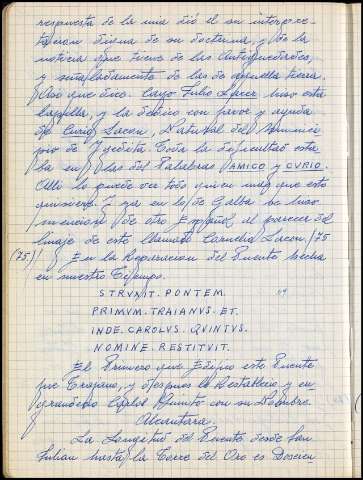 respuesta de la una dió el su interpre-
tacion digna de su doctrina, y de la
noticia que tiene de las Antiguedades,
y señaladamente de las de aquella tierra.
Asi que dice. Cayo Julio Lacer hizo esta
capilla, y la dedicó con favor y ayuda
de Curio Lacon, Natural del Munici-
pio de Igedita. Toda la dificultad esta
ba en las del Palabras AMICO y CVRIO.
Alli lo puede ver todo quien mas que esto
quisiere. Y ya en lo de Galba se hizo
mencion de otro Español al parecer del
linaje de este llamado Cornelio Lacon (75
(75) En la Reparacion del Puente hecha
en nuestro Tiempo.
STRVXIT. PONTEM.
PRIMVM. TRAIANVS. ET.
INDE. CAROLVS. QVINTVS.
NOMINE. RESTITVIT.
El Primero que Edifico este Puente
fue Trajano, y despues lo Restableció y en
grandeció Carlos Quinto con su Nombre.
Alcantara
La Longitud del Puente desde San
Julian hasta la Torre del Oro es Doscien